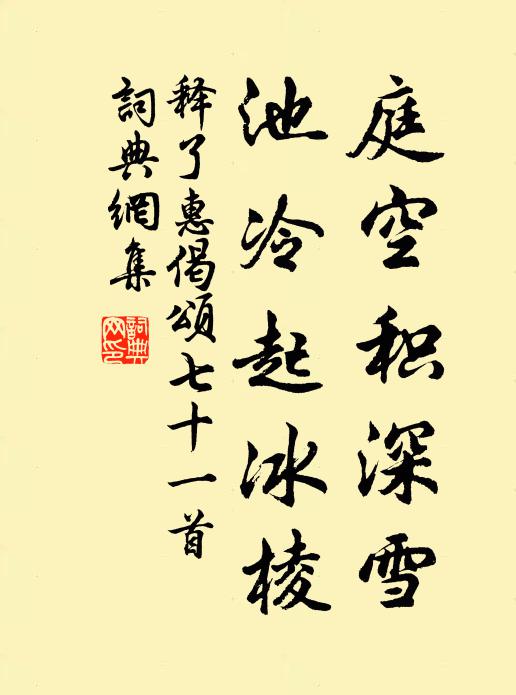 庭空积深雪
池冷起冰棱
释了惠偈頌七十一首
詞典網集
詞典网印